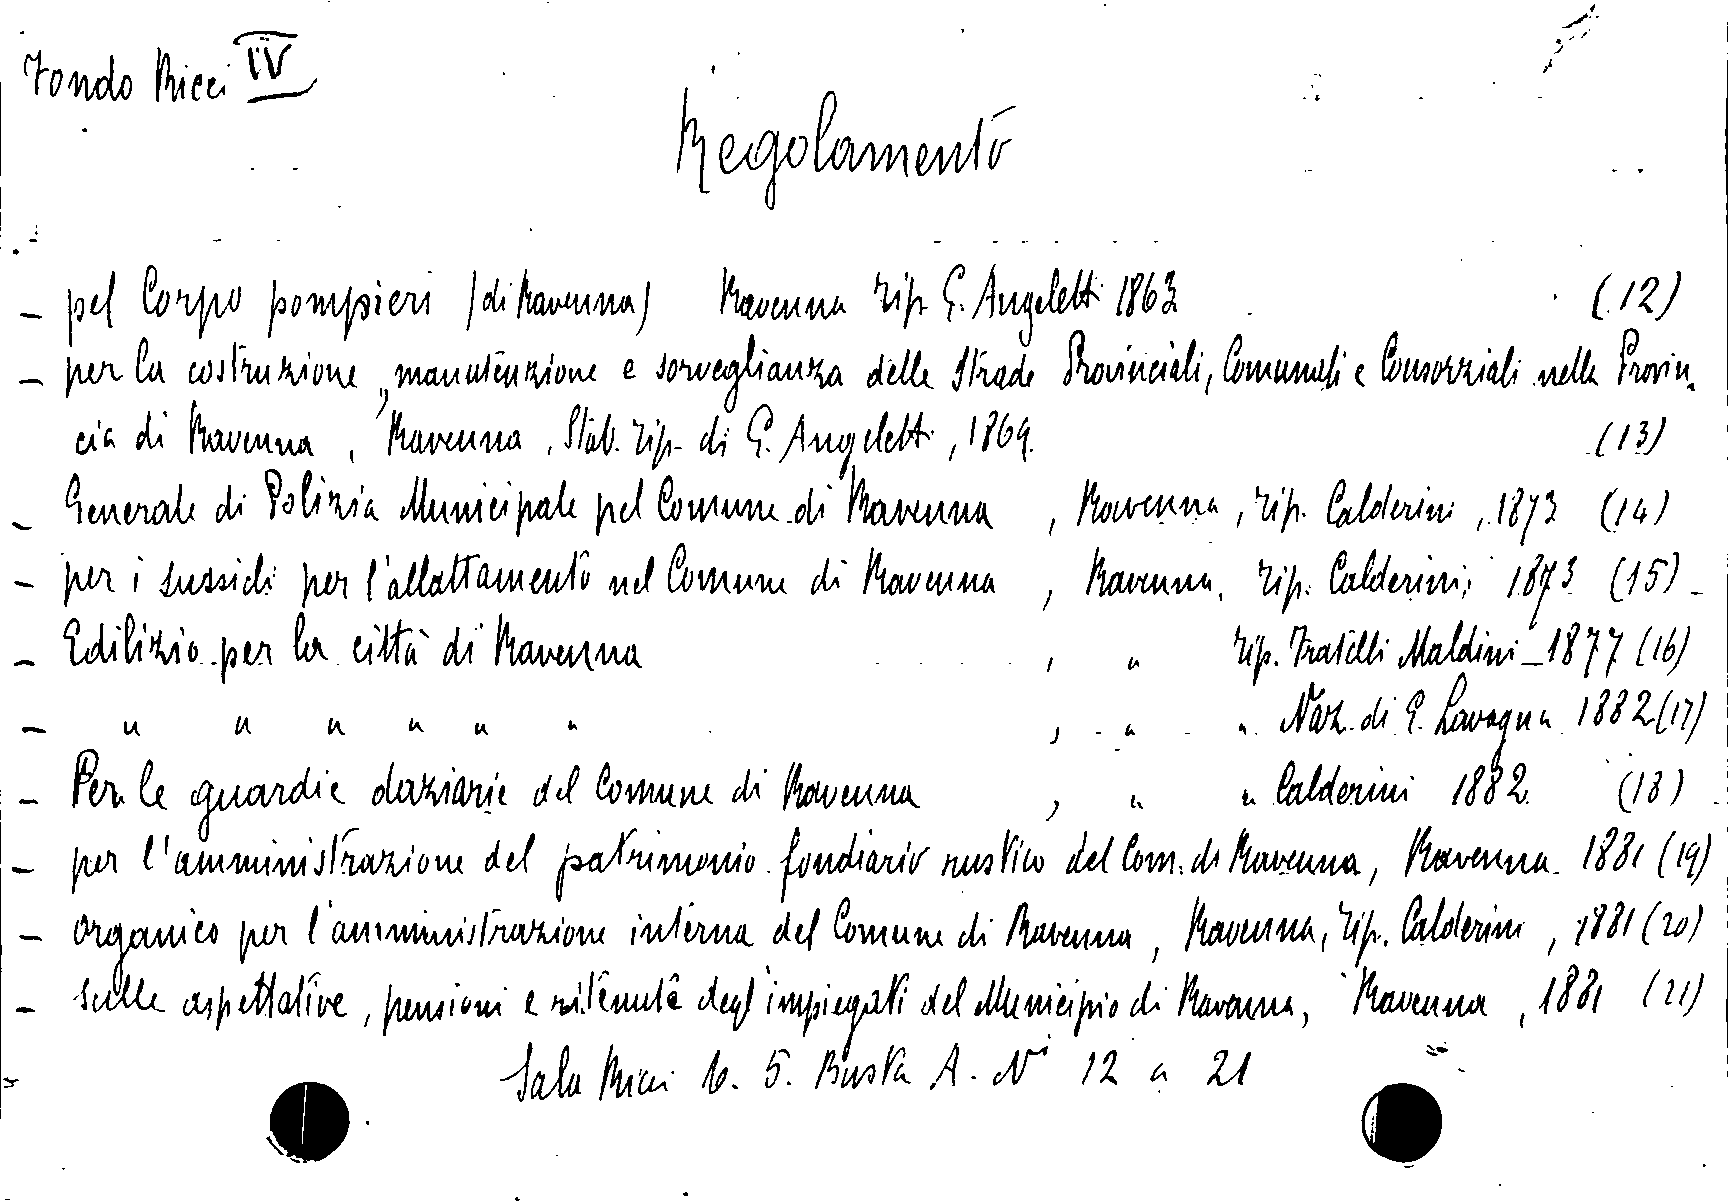 Fondo Ricci IV
Regolamento
- pel Corpo pompieri (di Ravenna) Ravenna Tip. G. Angeletti 1863 (12)
- per la costruzione, manutenzione e sorveglianza delle Strade Provinciali, Comunali e Consorziali nella Provin-
cia di Ravenna, Ravenna, Stab. Tip. di G. Angeletti, 1869 (13)
- Generale di Polizia Municipale pel Comune di Ravenna, Ravenna, Tip. Calderini, 1873 (14)
- per i sussidi per l'allattamento nel Comune di Ravenna, Ravenna, Tip. Calderini, 1873 (15)
- Edilizio per la città di Ravenna, " Tip. Fratelli Maldini - 1877 (16)
- " " " " " " , " " Naz. di E. Lavagna 1882 (17)
- Per le guardie daziarie del Comune di Ravenna, " " Calderini 1882 (18)
- per l'amministrazione del patrimonio fondiario rustico del Com. di Ravenna, Ravenna 1881 (19)
- organico per l'amministrazione interna del Comune di Ravenna, Ravenna, Tip. Calderini, 1881 (20)
- sulle aspettative, pensioni e ritenute degl'impiegati del Municipio di Ravenna, Ravenna, 1881 (21)
Sala Ricci b. 5. Busta A. Ni 12 a 21